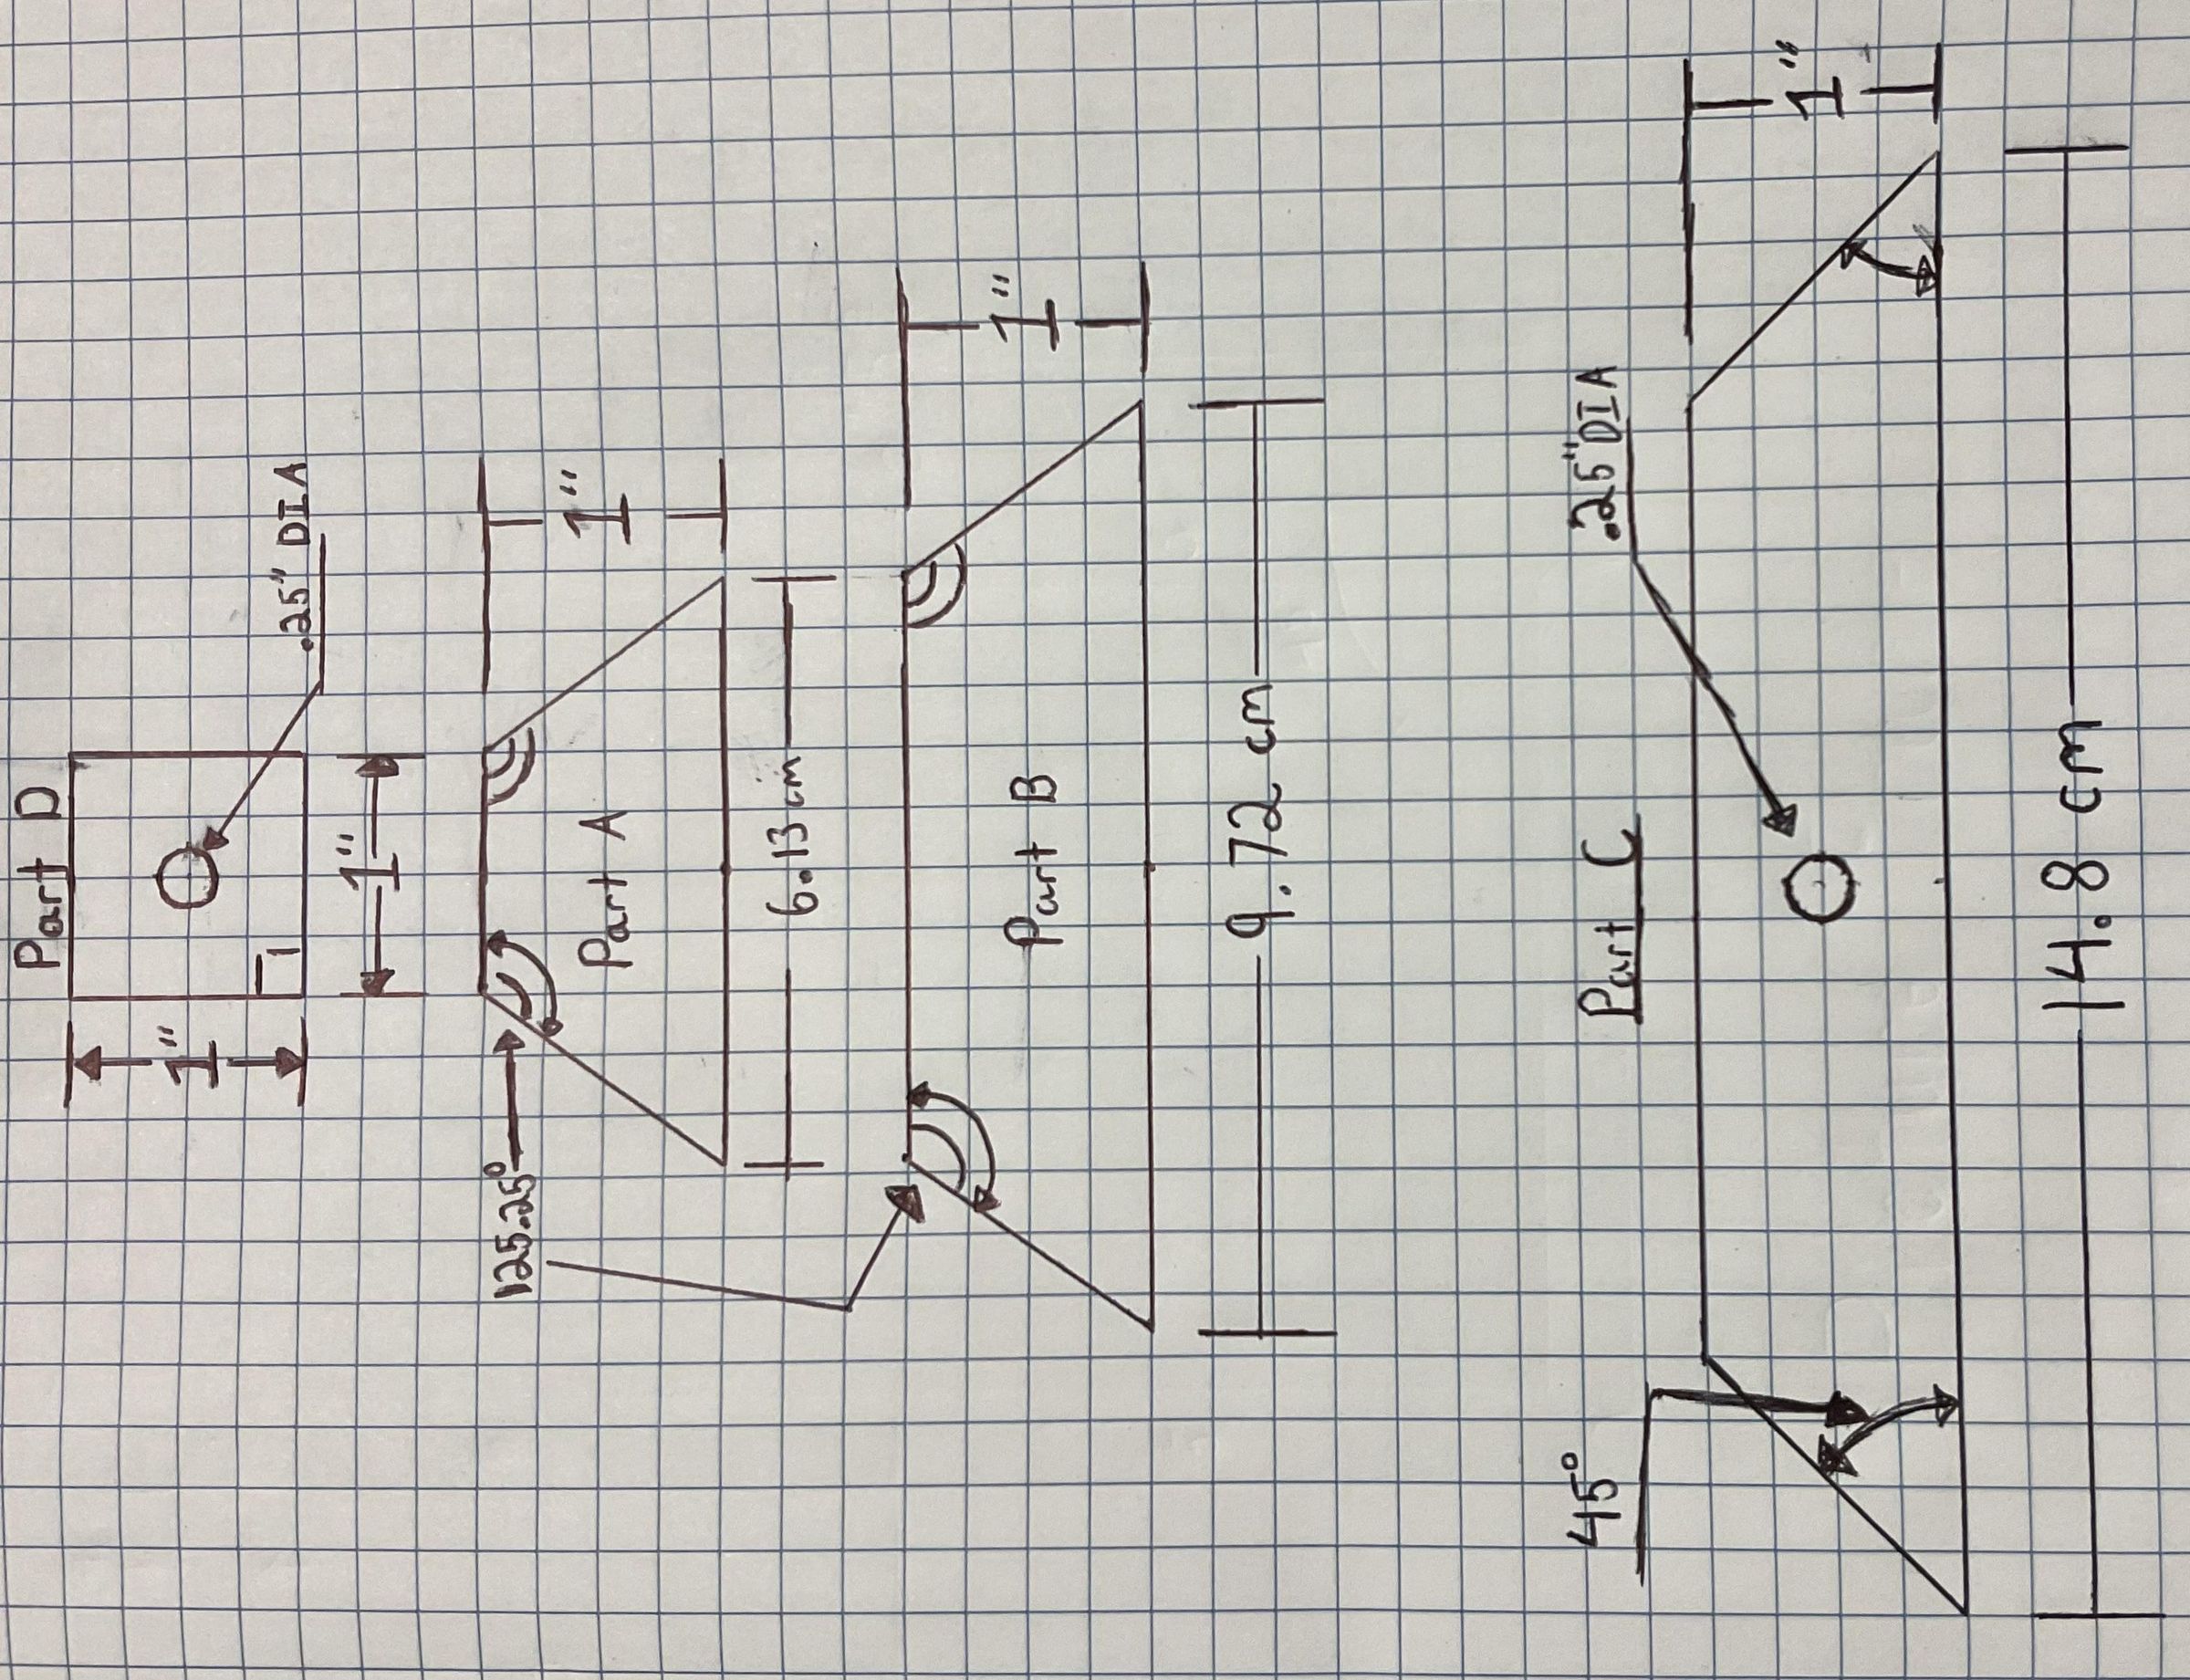 Part D
.25" DIA
1"
1"
125.25°
Part A
1"
6.13 cm
Part B
1"
9.72 cm
Part C
.25" DIA
1"
45°
14.8 cm